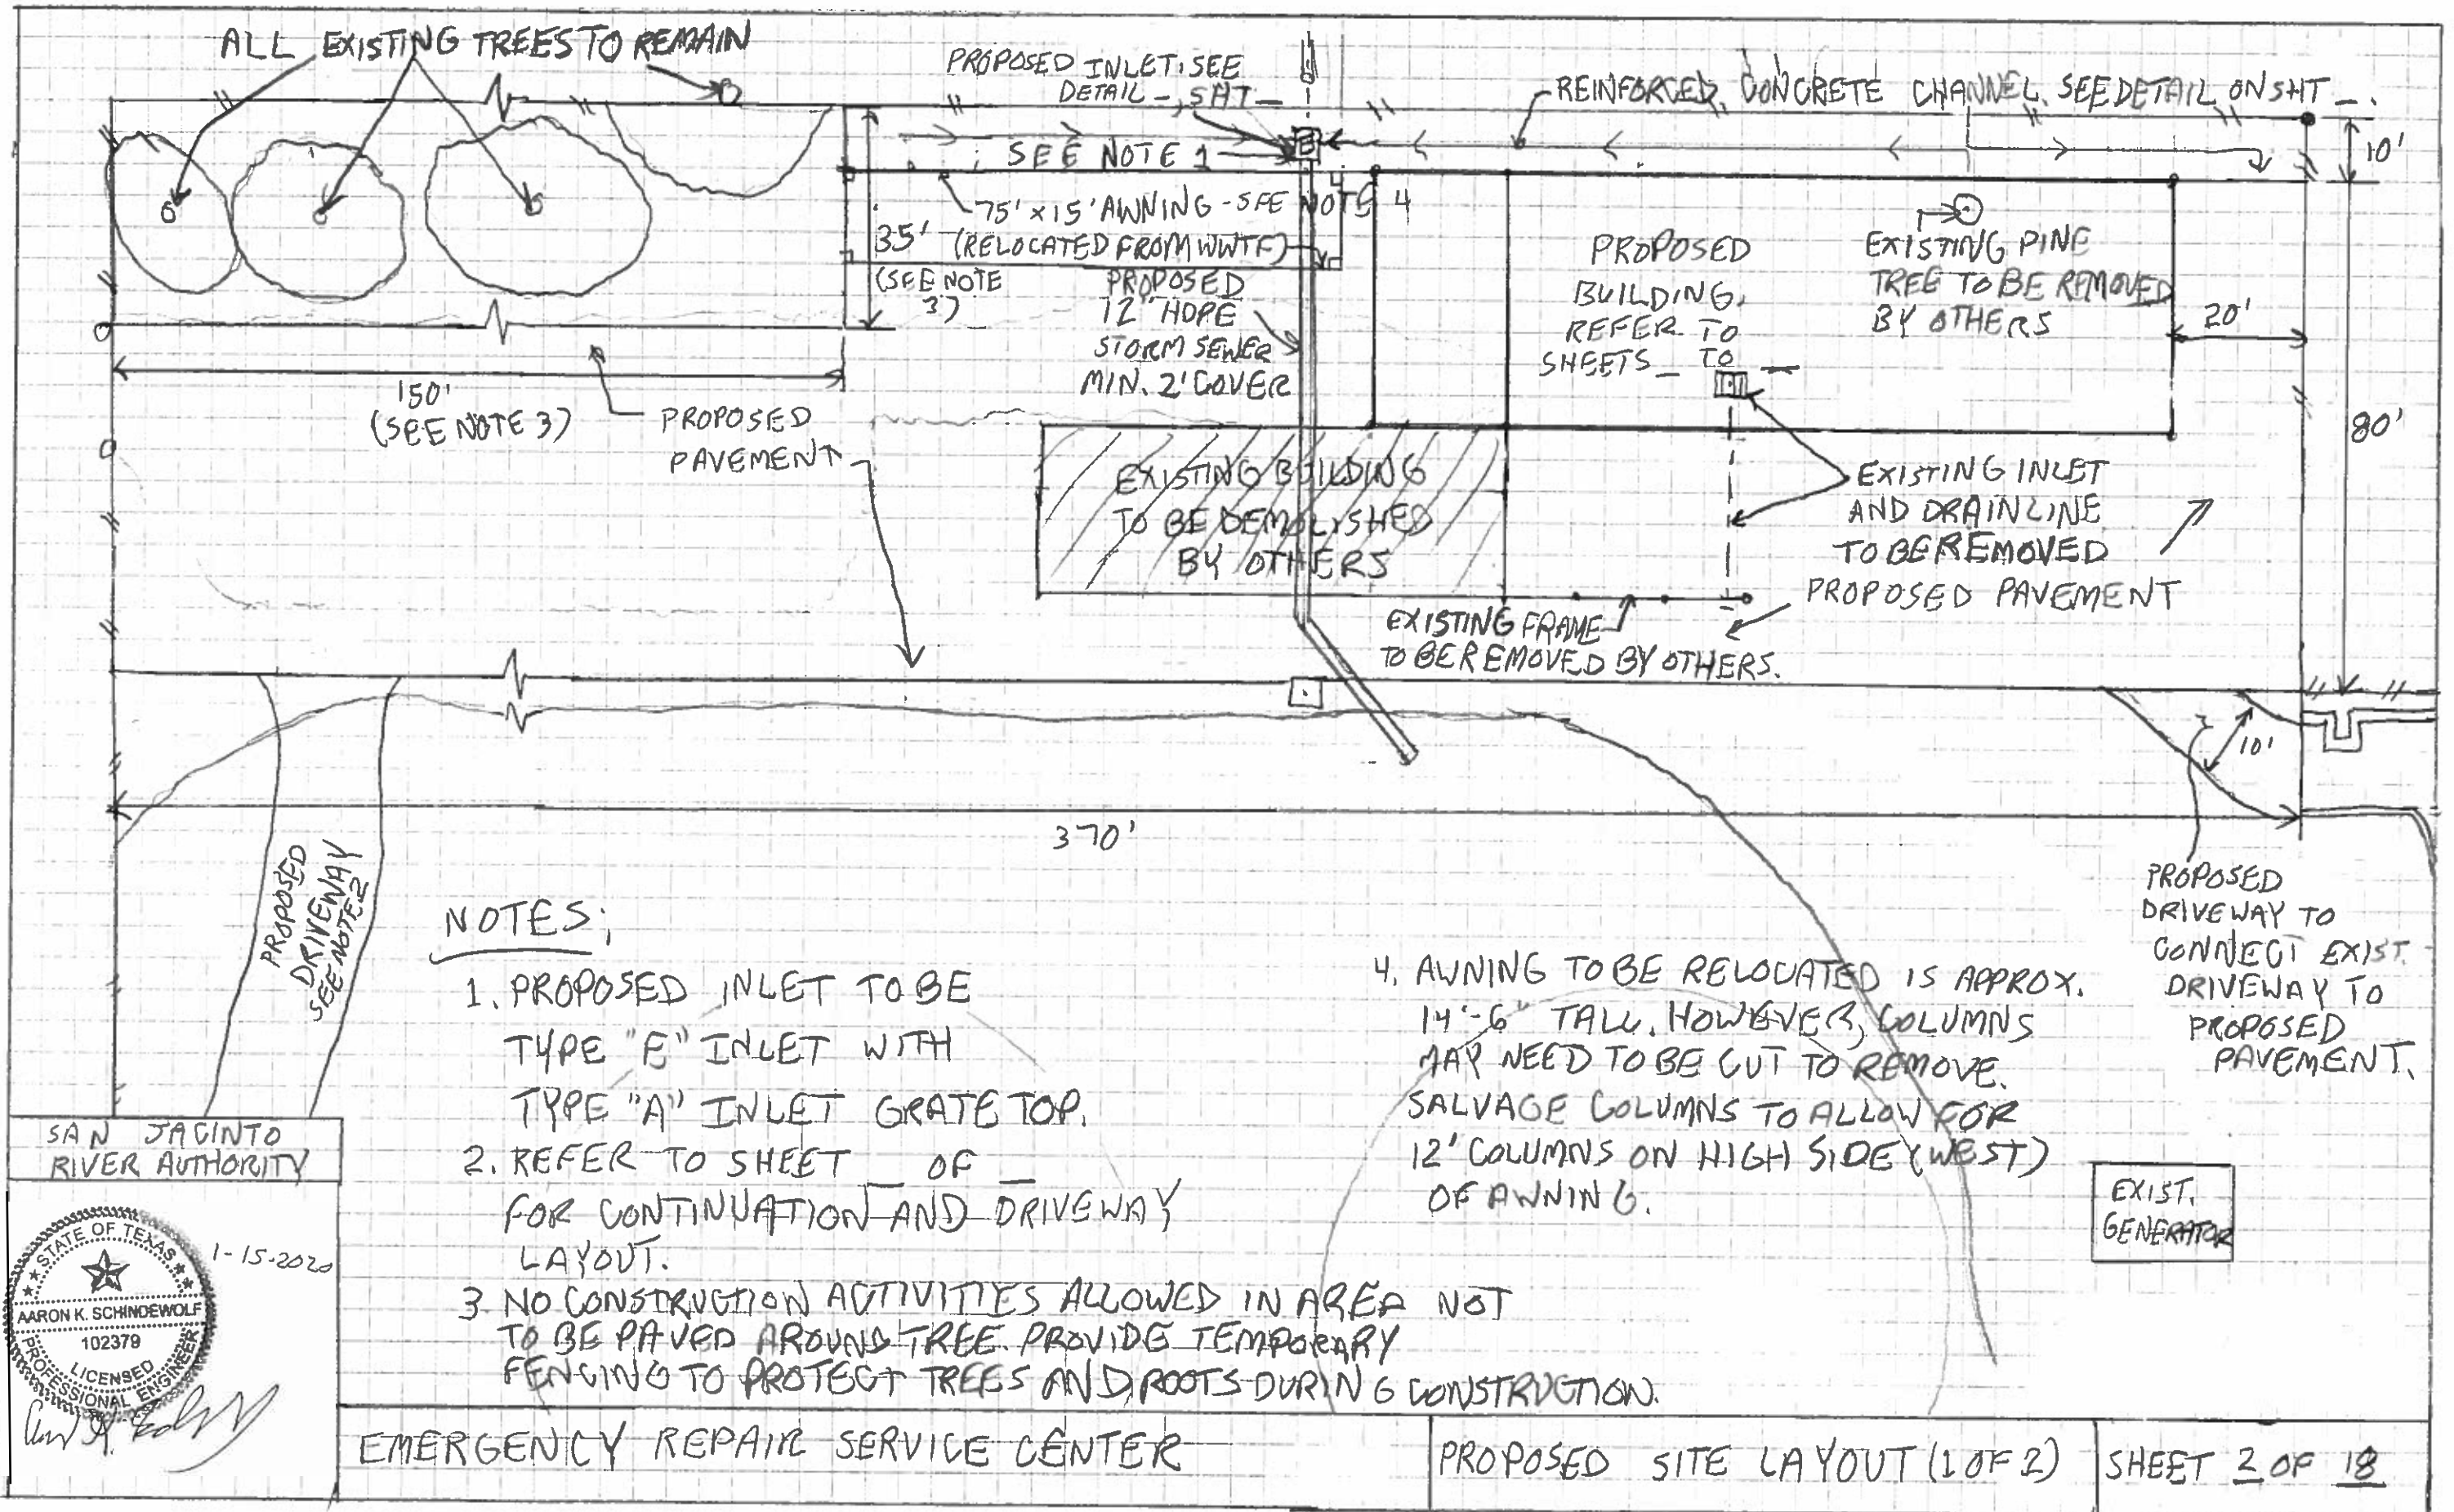 ALL EXISTING TREES TO REMAIN
PROPOSED INLET, SEE
DETAIL _, SHT _
REINFORCED CONCRETE CHANNEL. SEE DETAIL ON SHT _.
10'
SEE NOTE 1
75' x 15' AWNING - SEE NOTE 4
(RELOCATED FROM WWTF)
35'
(SEE NOTE
3)
PROPOSED
12" HDPE
STORM SEWER
MIN. 2' COVER
PROPOSED
BUILDING.
REFER TO
SHEETS _ TO _
EXISTING PINE
TREE TO BE REMOVED
BY OTHERS
20'
150'
(SEE NOTE 3)
PROPOSED
PAVEMENT
80'
EXISTING BUILDING
TO BE DEMOLISHED
BY OTHERS
EXISTING INLET
AND DRAINLINE
TO BE REMOVED
PROPOSED PAVEMENT
EXISTING FRAME
TO BE REMOVED BY OTHERS.
10'
370'
PROPOSED
DRIVEWAY
SEE NOTE 2
PROPOSED
DRIVEWAY TO
CONNECT EXIST.
DRIVEWAY TO
PROPOSED
PAVEMENT.
NOTES:
1. PROPOSED INLET TO BE
TYPE "E" INLET WITH
TYPE "A" INLET GRATE TOP.
2. REFER TO SHEET _ OF _
FOR CONTINUATION AND DRIVEWAY
LAYOUT.
3 NO CONSTRUCTION ACTIVITIES ALLOWED IN AREA NOT
TO BE PAVED AROUND TREE. PROVIDE TEMPORARY
FENCING TO PROTECT TREES AND ROOTS DURING CONSTRUCTION.
4. AWNING TO BE RELOCATED IS APPROX.
14'-6" TALL. HOWEVER, COLUMNS
MAY NEED TO BE CUT TO REMOVE.
SALVAGE COLUMNS TO ALLOW FOR
12' COLUMNS ON HIGH SIDE (WEST)
OF AWNING.
EXIST.
GENERATOR
SAN JACINTO
RIVER AUTHORITY
STATE OF TEXAS
AARON K. SCHINDEWOLF
102379
LICENSED
PROFESSIONAL ENGINEER
1-15-2020
EMERGENCY REPAIR SERVICE CENTER
PROPOSED SITE LAYOUT (1 OF 2)
SHEET 2 OF 18